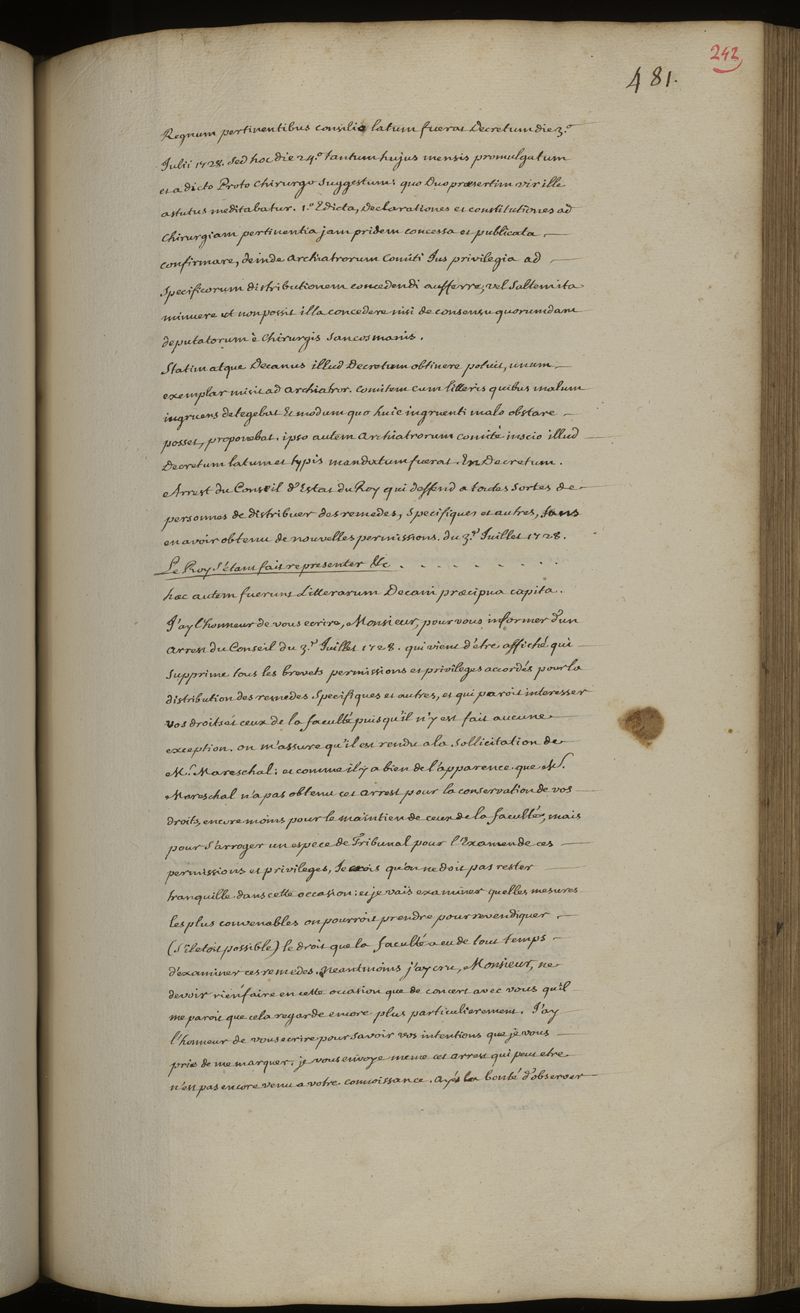 242
481.
Regnum pertinentibus consilio latum fuerat Decretum die 3.a
Julii 1728. Sed hoc die 24.a tantum hujus mensis promulgatum
et a dicto Proto Chirurgo suggestum; quo Duo præsertim vir ille
astutus meditabatur. 1.o Edicta, Declarationes et constitutiones ad
Chirurgiam pertinentia jam pridem concessa et publicata
confirmare, deinde archiatrorum Comiti Jus privilegia ad
Specificorum distributionem concedendi aufferre, vel Saltem ita
minuere ut non possit illa concedere nisi de consensu quorumdam
deputatorum è Chirurgis Sancosmanis.
Statim atque Decanus illud Decretum obtinere potuit, unum
exemplar misit ad archiatror. Comitem cum litteris quibus malum
ingruens detegebat Et modum quo huic ingruenti malo obstare
posset, proponebat. ipso autem Archiatrorum Comite inscio illud
Decretum latum et typis mandatum fuerat. En Decretum.
Arrest du Conseil d'Estat du Roy qui deffend a toutes sortes de
personnes de distribuer des remedes, Specifiques et autres, sans
en avoir obtenu de nouvelles permissions. du 3.e Juillet 1728.
Le Roy S'étant fait representer &c. . . . . . . . .
hæc autem fuerunt Litterarum Decani præcipua capita.
J'ay l'honneur de vous ecrire, Monsieur, pour vous informer d'un
arrest du Conseil du 3.e Juillet 1728. qui vient d'être affiché qui
Supprime tous les brevets permissions et privileges accordés pour la
distribution des remedes Specifiques et autres, et qui paroit interesser
vos droits et ceux de la faculté puisqu'il n'y est fait aucune
exception. on m'assure qu'il est rendu a la Sollicitation de
M.r Mareschal; et comme il y a bien de l'apparence que M.r
Mareschal n'a pas obtenu cet arrest pour la conservation de vos
droits, encore moins pour le maintien de ceux de la faculté, mais
pour S'arroger un espece de Tribunal pour l'Examen de ces
permissions et privileges, Je crois qu'on ne doit pas rester
tranquille dans cette occasion; et je vais examiner quelles mesures
les plus convenables on pourroit prendre pour revendiquer
(S'il etoit possible) le droit que la faculté a eu de tout temps
d'examiner ces remedes. Neantmoins j'ay cru, Monsieur, ne
devoir rien faire en cette occasion que de concert avec vous qu'il
me paroit que cela regarde encore plus particulierement. J'ay
l'honneur de vous ecrire pour savoir vos intentions que je vous
prie de me marquer; je vous envoye meme cet arrest qui peut etre
n'est pas encore venu a votre connoissance. ayés la bonté d'observer